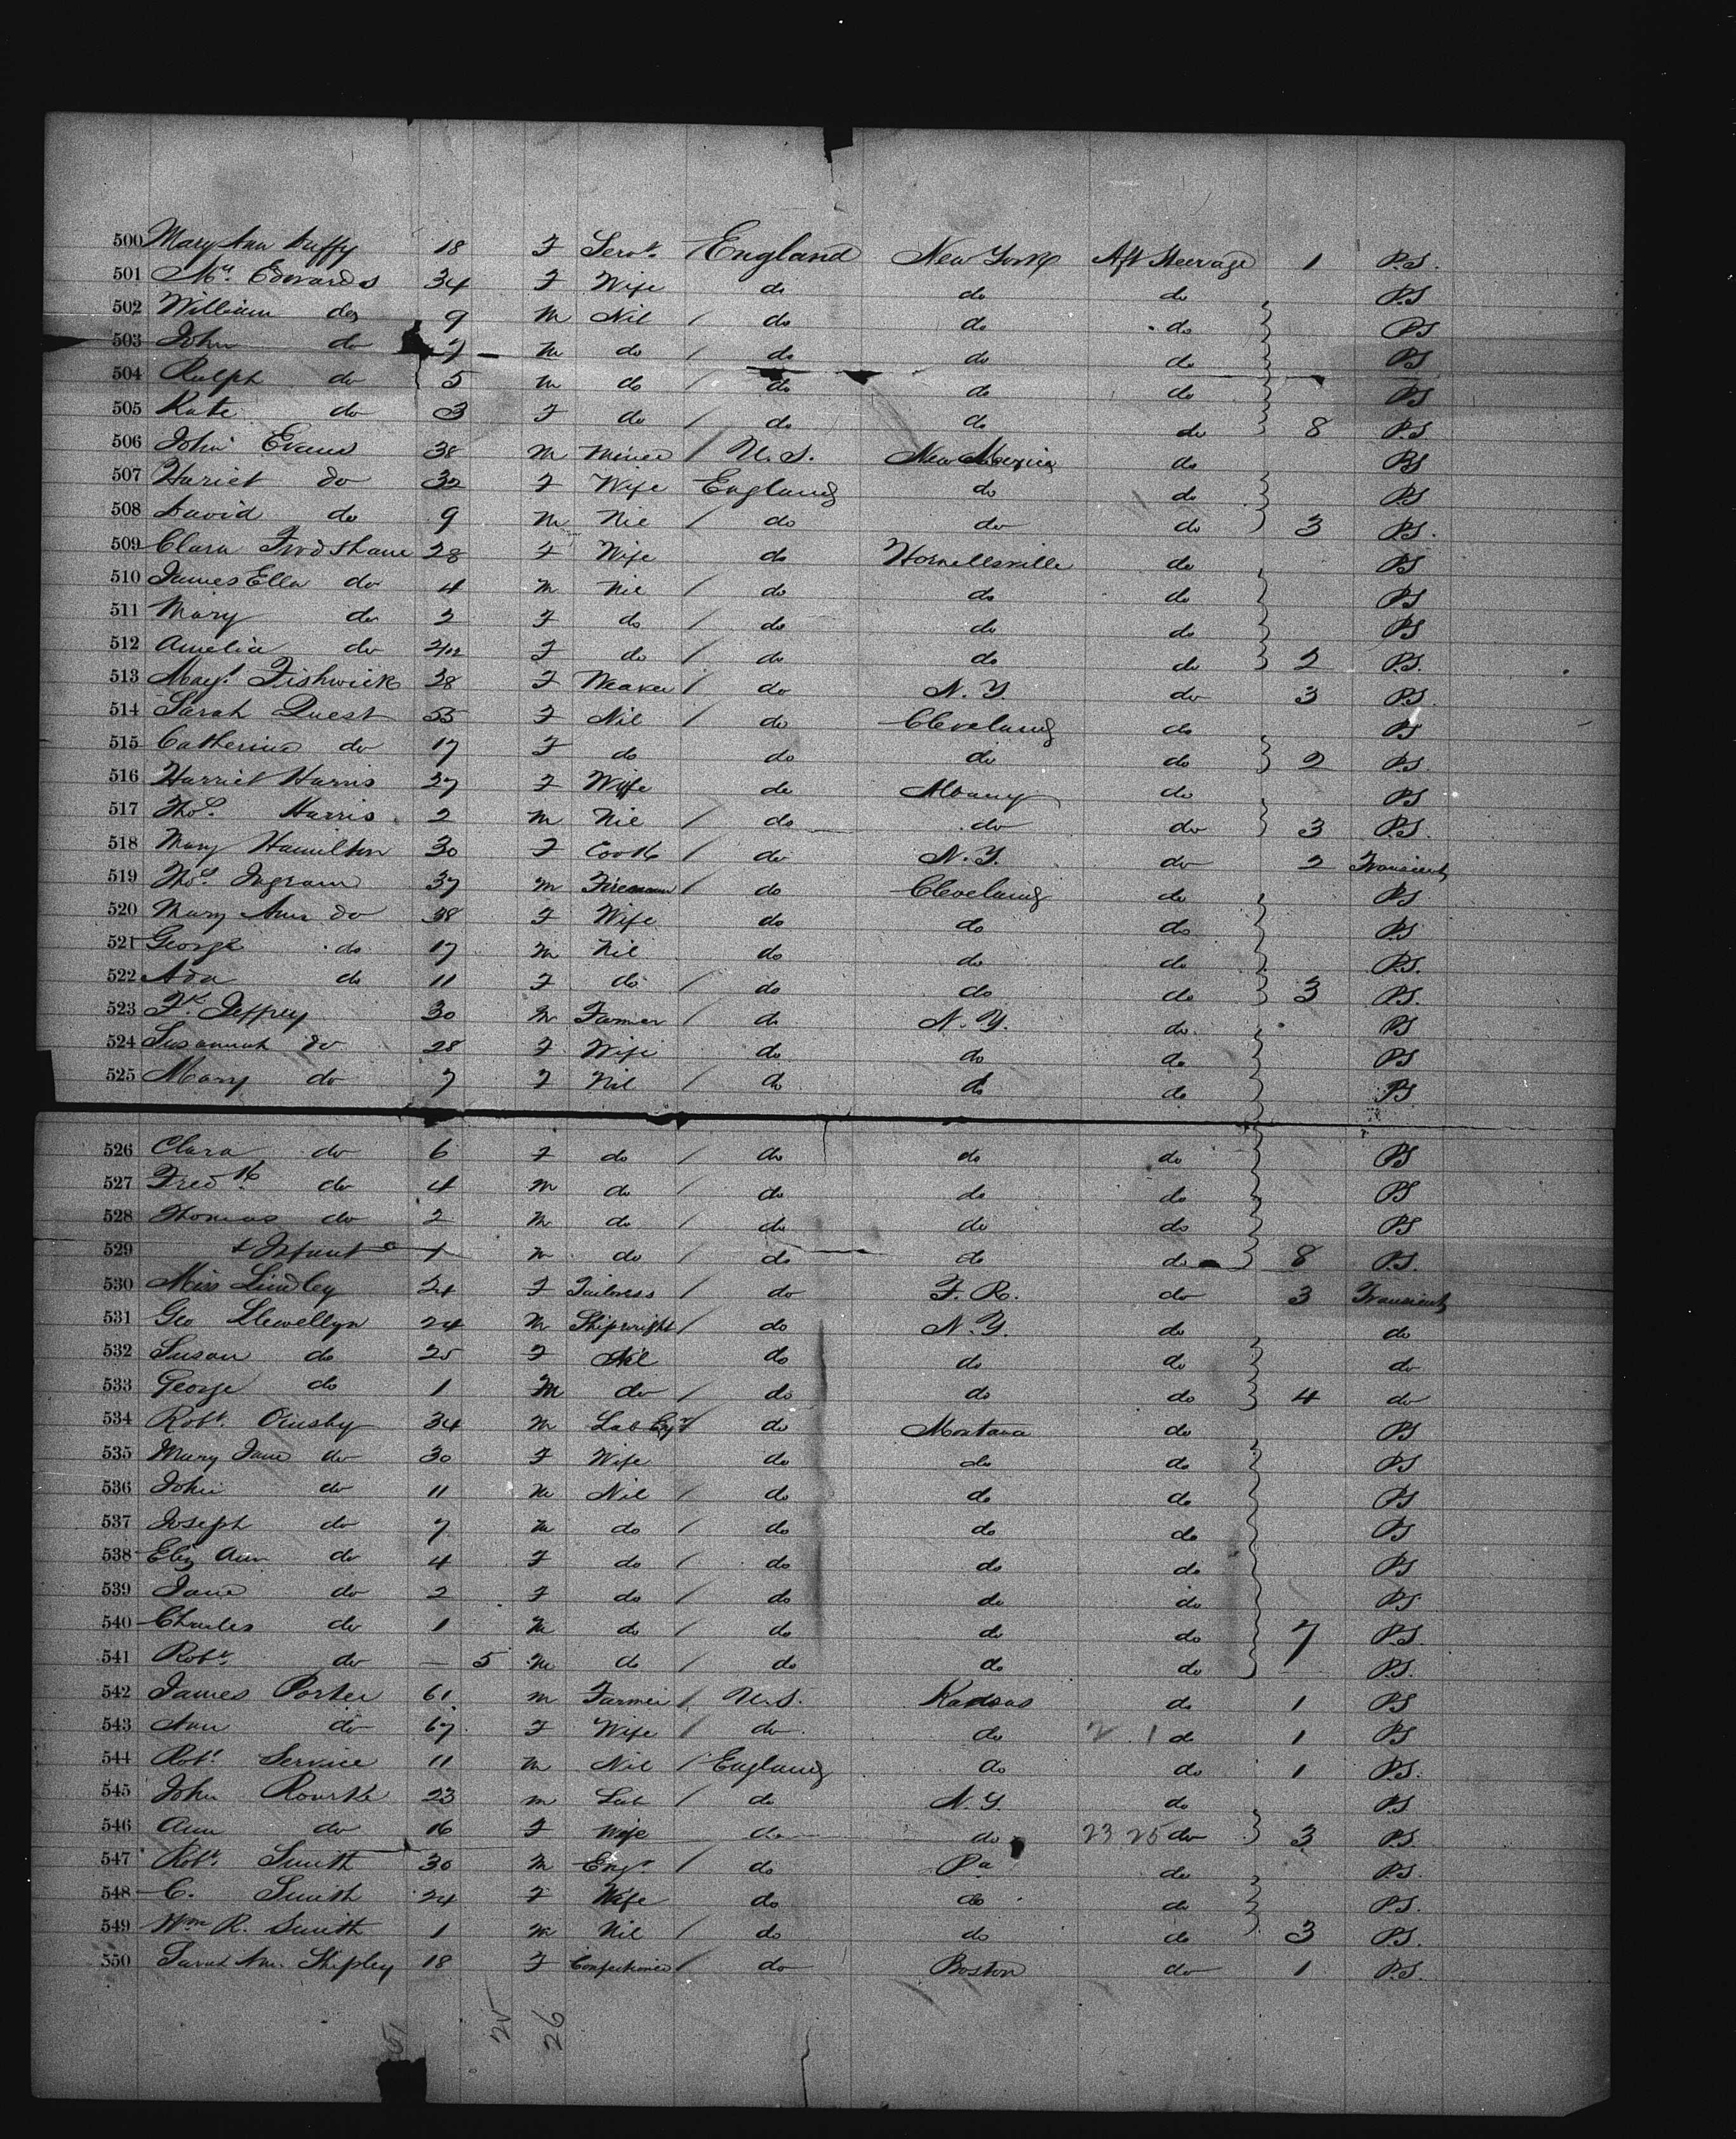 500 Mary Ann Duffy 18 F Servt. England New York Aft Steerage 1 P.S.
501 Mrs. Edwards 34 F Wife do do do P.S
502 William do 9 M Nil / do do do P.S
503 John do 7 M do / do do do P.S
504 Ralph do 5 M do / do do do P.S
505 Kate do 3 F do / do do do 8 P.S
506 John Evans 38 M Miner / U.S. New Mexico do P.S
507 Hariet do 32 F Wife England do do P.S
508 David do 9 M Nil / do do do 3 P.S.
509 Clara 28 F Wife do Hornellsville do P.S
510 James Ella do 4 M Nil / do do do P.S
511 Mary do 2 F do / do do do P.S
512 Amelia do F do / do do do 2 P.S.
513 Magt. Fishwick 38 F Weaver / do N.Y. do 3 P.S.
514 Sarah Quest 55 F Nil / do Cleveland do P.S
515 Catherine do 17 F do do do do 2 P.S.
516 Harriet Harris 27 F Wife do Albany do P.S
517 Thos. Harris 2 M Nil / do do do 3 P.S.
518 Mary Hamilton 30 F Cook / do N.Y. do 2 Transient
519 Thos. Ingram 37 M Fireman / do Cleveland do P.S
520 Mary Ann do 38 F Wife do do do P.S
521 George do 17 M Nil do do do P.S.
522 Ada do 11 F do / do do do 3 P.S.
523 Fk. Jeffrey 30 M Farmer / do N.Y. do P.S
524 Susannah do 28 F Wife do do do P.S
525 Mary do 7 F Nil / do do do P.S
526 Clara do 6 F do / do do do P.S
527 Fredk. do 4 M do / do do do P.S
528 Thomas do 2 M do / do do do P.S
529 & Infant 1 M do / do do do 8 P.S.
530 Miss Lindley 24 F Tailoress / do F.R. do 3 Transient
531 Geo Llewellyn 24 M Shipwright / do N.Y. do do
532 Susan do 25 F Nil do do do do
533 George do 1 M do / do do do 4 do
534 Robt. 34 M Lab / do Montana do P.S
535 Mary Jane do 30 F Wife do do do P.S
536 John do 11 M Nil / do do do P.S
537 Joseph do 7 M do / do do do P.S
538 Eliz Ann do 4 F do / do do do P.S
539 Jane do 2 F do / do do do P.S
540 Charles do 1 M do / do do do 7 P.S.
541 Robt. do — 5 M do / do do do P.S.
542 James Porter 61 M Farmer / U.S. Kansas do 1 P.S
543 Ann do 67 F Wife / do do 2 1 do 1 P.S
544 Robt. Service 11 M Nil / England do do 1 P.S.
545 John Rourke 23 M Lab / do N.Y. do P.S
546 Ann do 16 F Wife do do 23 25 do 3 P.S.
547 Robt. Smith 30 M Engr / do Pa do P.S.
548 C. Smith 24 F Wife do do do P.S.
549 Wm R. Smith 1 M Nil / do do do 3 P.S.
550 Sarah Ann Shipley 18 F Confectioner / do Boston do 1 P.S.
51 25 26